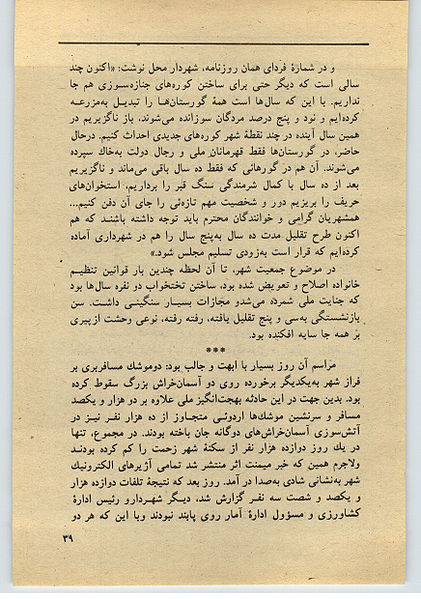 و در شمارهٔ فردای همان روزنامه، شهردار محل نوشت: «اکنون چند
سالی است که دیگر حتی برای ساختن کوره‌های جنازه‌سوزی هم جا
نداریم. با این که سال‌ها است همهٔ گورستان‌ها را تبدیل به‌مزرعه
کرده‌ایم و نود و پنج درصد مردگان سوزانده می‌شوند، باز ناگزیریم در
همین سال آینده در چند نقطهٔ شهر کوره‌های جدیدی احداث کنیم. درحال
حاضر، در گورستان‌ها فقط قهرمانان ملی و رجال دولت به‌خاك سپرده
می‌شوند. آن هم در گورهائی که فقط ده سال باقی می‌ماند و ناگزیریم
بعد از ده سال با کمال شرمندگی سنگ قبر را برداریم، استخوان‌های
حریف را بریزیم دور و شخصیت مهم تازه‌ئی را جای آن دفن کنیم...
همشهریان گرامی و خوانندگان محترم باید توجه داشته باشند که هم
اکنون طرح تقلیل مدت ده سال به‌پنج سال را هم در شهرداری آماده
کرده‌ایم که قرار است به‌زودی تسلیم مجلس شود.»
در موضوع جمعیت شهر، تا آن لحظه چندین بار قوانین تنظیم
خانواده اصلاح و تعویض شده بود، ساختن تختخواب دو نفره سال‌ها بود
که جنایت ملی شمرده می‌شدو مجازات بسیار سنگینی داشت. سن
بازنشستگی به‌سی و پنج تقلیل یافته، رفته رفته، نوعی وحشت ازپیری
بر همه جا سایه افکنده بود.
***
مراسم آن روز بسیار با ابهت و جالب بود: دوموشك مسافربری بر
فراز شهر به‌یکدیگر برخورده روی دو آسمان‌خراش بزرگ سقوط کرده
بود. بدین جهت در این حادثه بهجت‌انگیز ملی علاوه بر دو هزار و یکصد
مسافر و سرنشین موشك‌ها اردوئی متجاوز از ده هزار نفر نیز در
آتش‌سوزی آسمان‌خراش‌های دوگانه جان باخته بودند. در مجموع، تنها
در یك روز دوازده هزار نفر از سکنهٔ شهر زحمت را کم کرده بودند
ولاجرم همین که خبر میمنت اثر منتشر شد تمامی آژیرهای الکترونیك
شهر به‌نشانی شادی به‌صدا در آمد. روز بعد که نتیجهٔ تلفات دوازده هزار
و یکصد و شصت سه نفر گزارش شد، دیگر شهردارو رئیس ادارهٔ
کشاورزی و مسؤول ادارهٔ آمار روی پابند نبودند وبا این که هر دو
۳۹